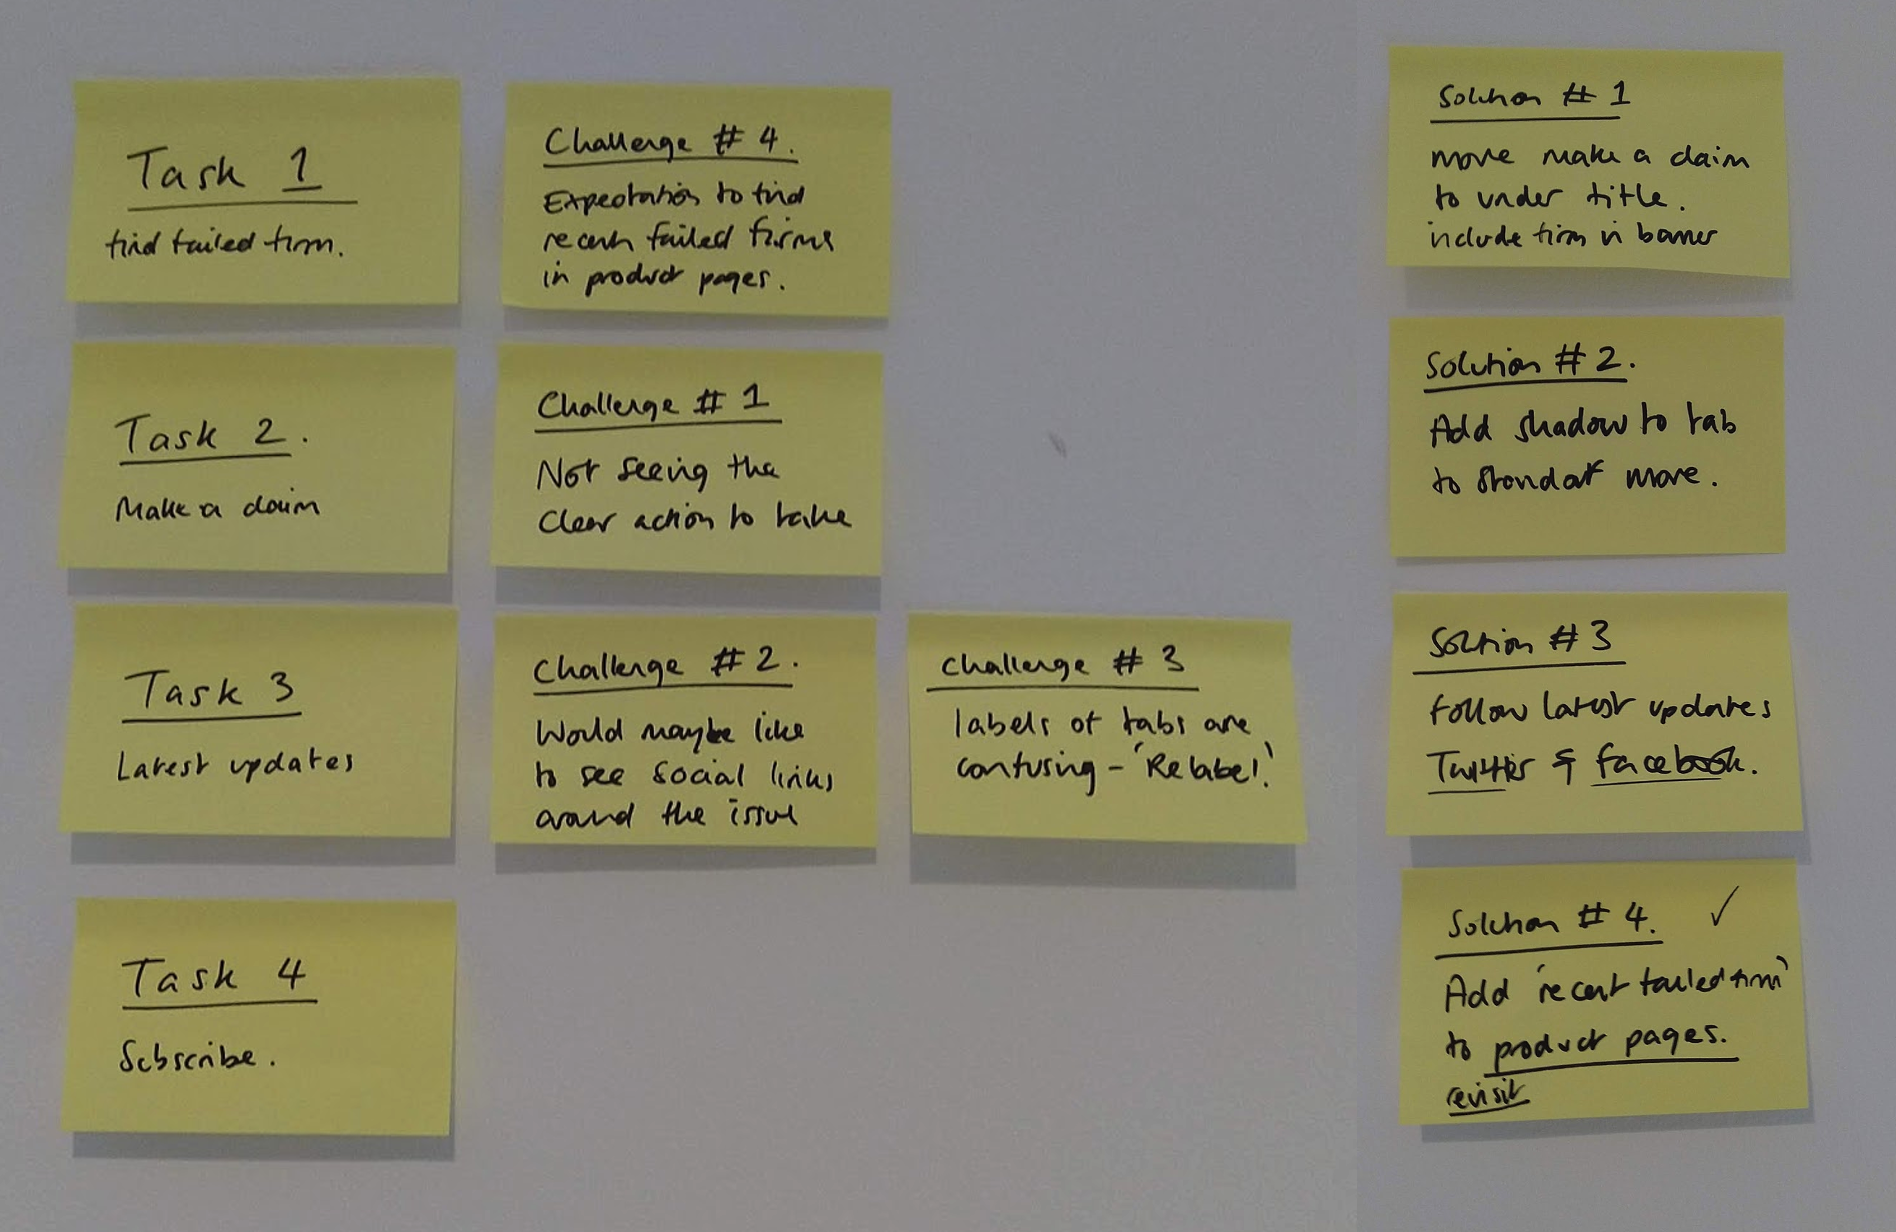 Task 1
find failed firm.
Challenge # 4.
Expectation to find
recent failed firms
in product pages.
Solution # 1
move make a claim
to under title.
include firm in banner
Task 2.
Make a claim
Challenge # 1
Not seeing the
clear action to take
Solution # 2.
Add shadow to tab
to standout more.
Task 3
Latest updates
Challenge # 2.
Would maybe like
to see social links
around the issue
Challenge # 3
labels of tabs are
confusing - 'Relabel!'
Solution # 3
Follow latest updates
Twitter & facebook.
Task 4
Subscribe.
Solution # 4. ✓
Add 'recent failed firm'
to product pages.
revisit